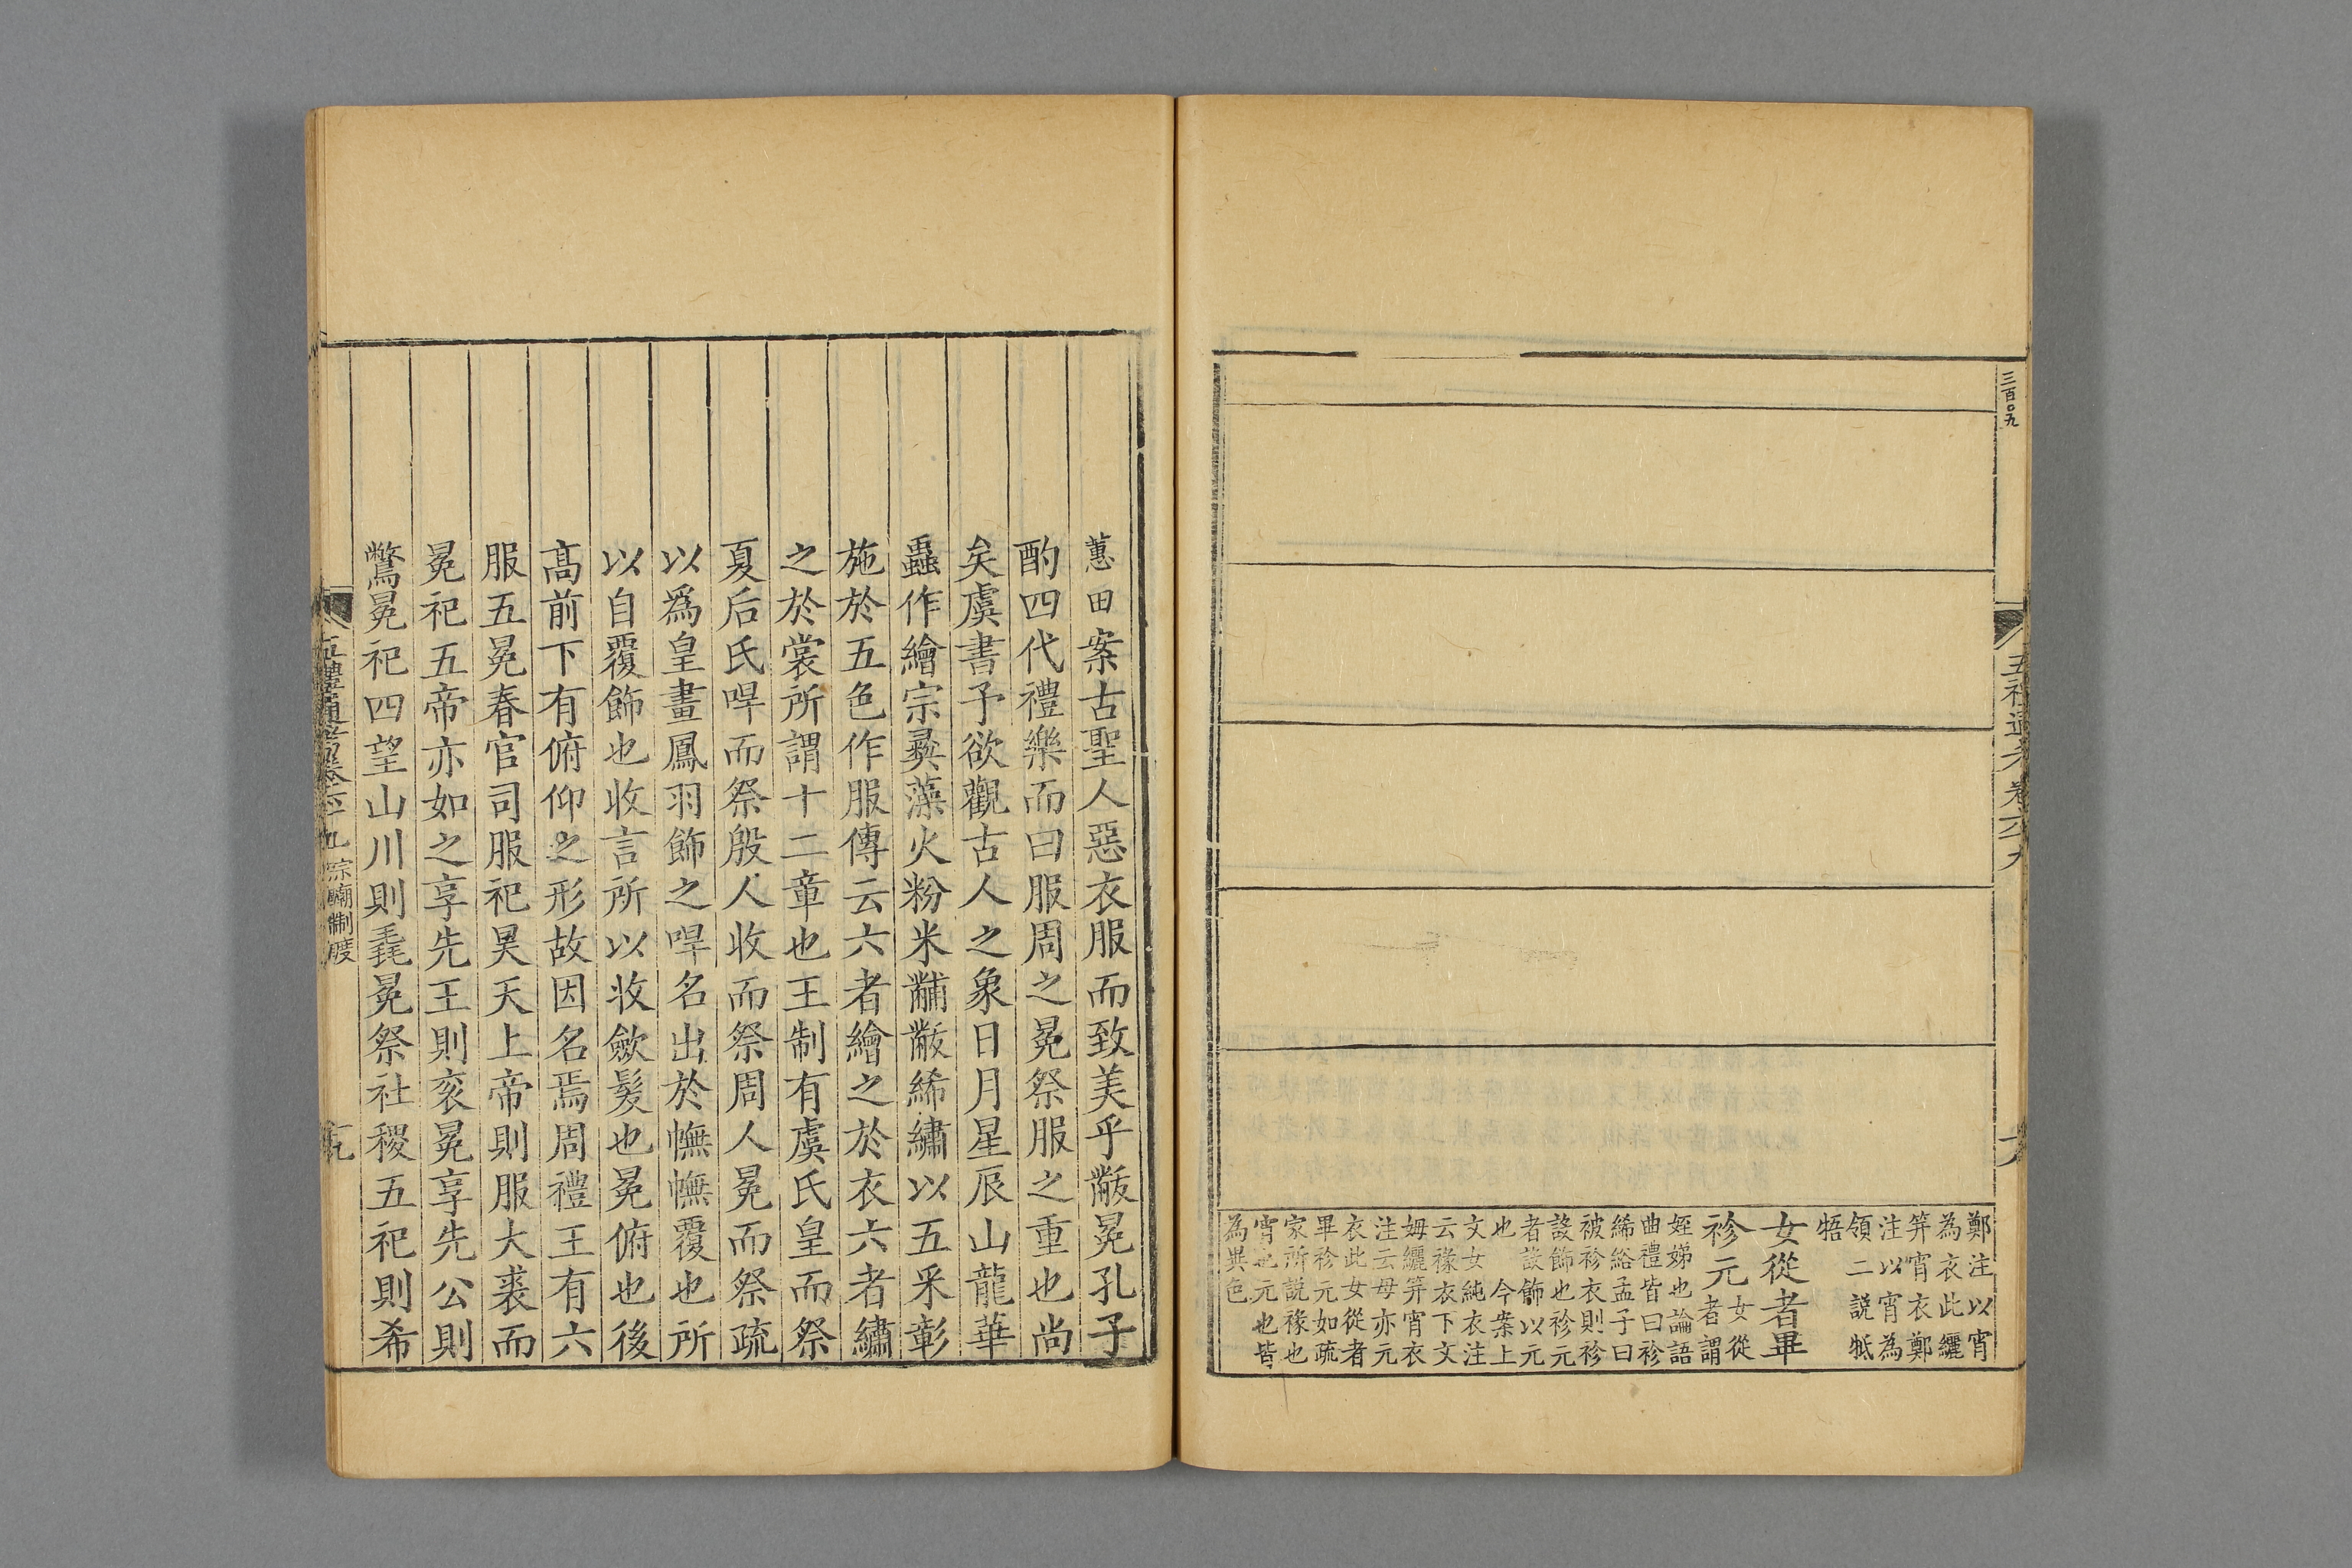 三百〇九
鄭注以宵
為衣此纚
笄宵衣鄭
注以宵為
領二説牴
牾
女從者畢
袗元者謂
女從
姪娣也論語
曲禮皆曰袗
絺綌孟子曰
被袗衣則袗
設飾也袗元
者設飾以元
也　今案上
文女純衣注
云褖衣下文
姆纚笄宵衣
注云母亦元
衣此女從者
畢袗元如疏
家所説褖也
宵也元也皆
為異色
蕙田案古聖人惡衣服而致美乎黻冕孔子
酌四代禮樂而曰服周之冕祭服之重也尚
矣虞書予欲觀古人之象日月星辰山龍華
蟲作繪宗彝藻火粉米黼黻絺繡以五采彰
施於五色作服傳云六者繪之於衣六者繡
之於裳所謂十二章也王制有虞氏皇而祭
夏后氏哻而祭殷人收而祭周人冕而祭疏
以爲皇畫鳳羽飾之哻名出於幠幠覆也所
以自覆飾也收言所以收斂髮也冕俯也後
髙前下有俯仰之形故因名焉周禮王有六
服五冕春官司服祀昊天上帝則服大裘而
冕祀五帝亦如之享先王則袞冕享先公則
鷩冕祀四望山川則毳冕祭社稷五祀則希
五禮通考卷六十九　宗廟制度